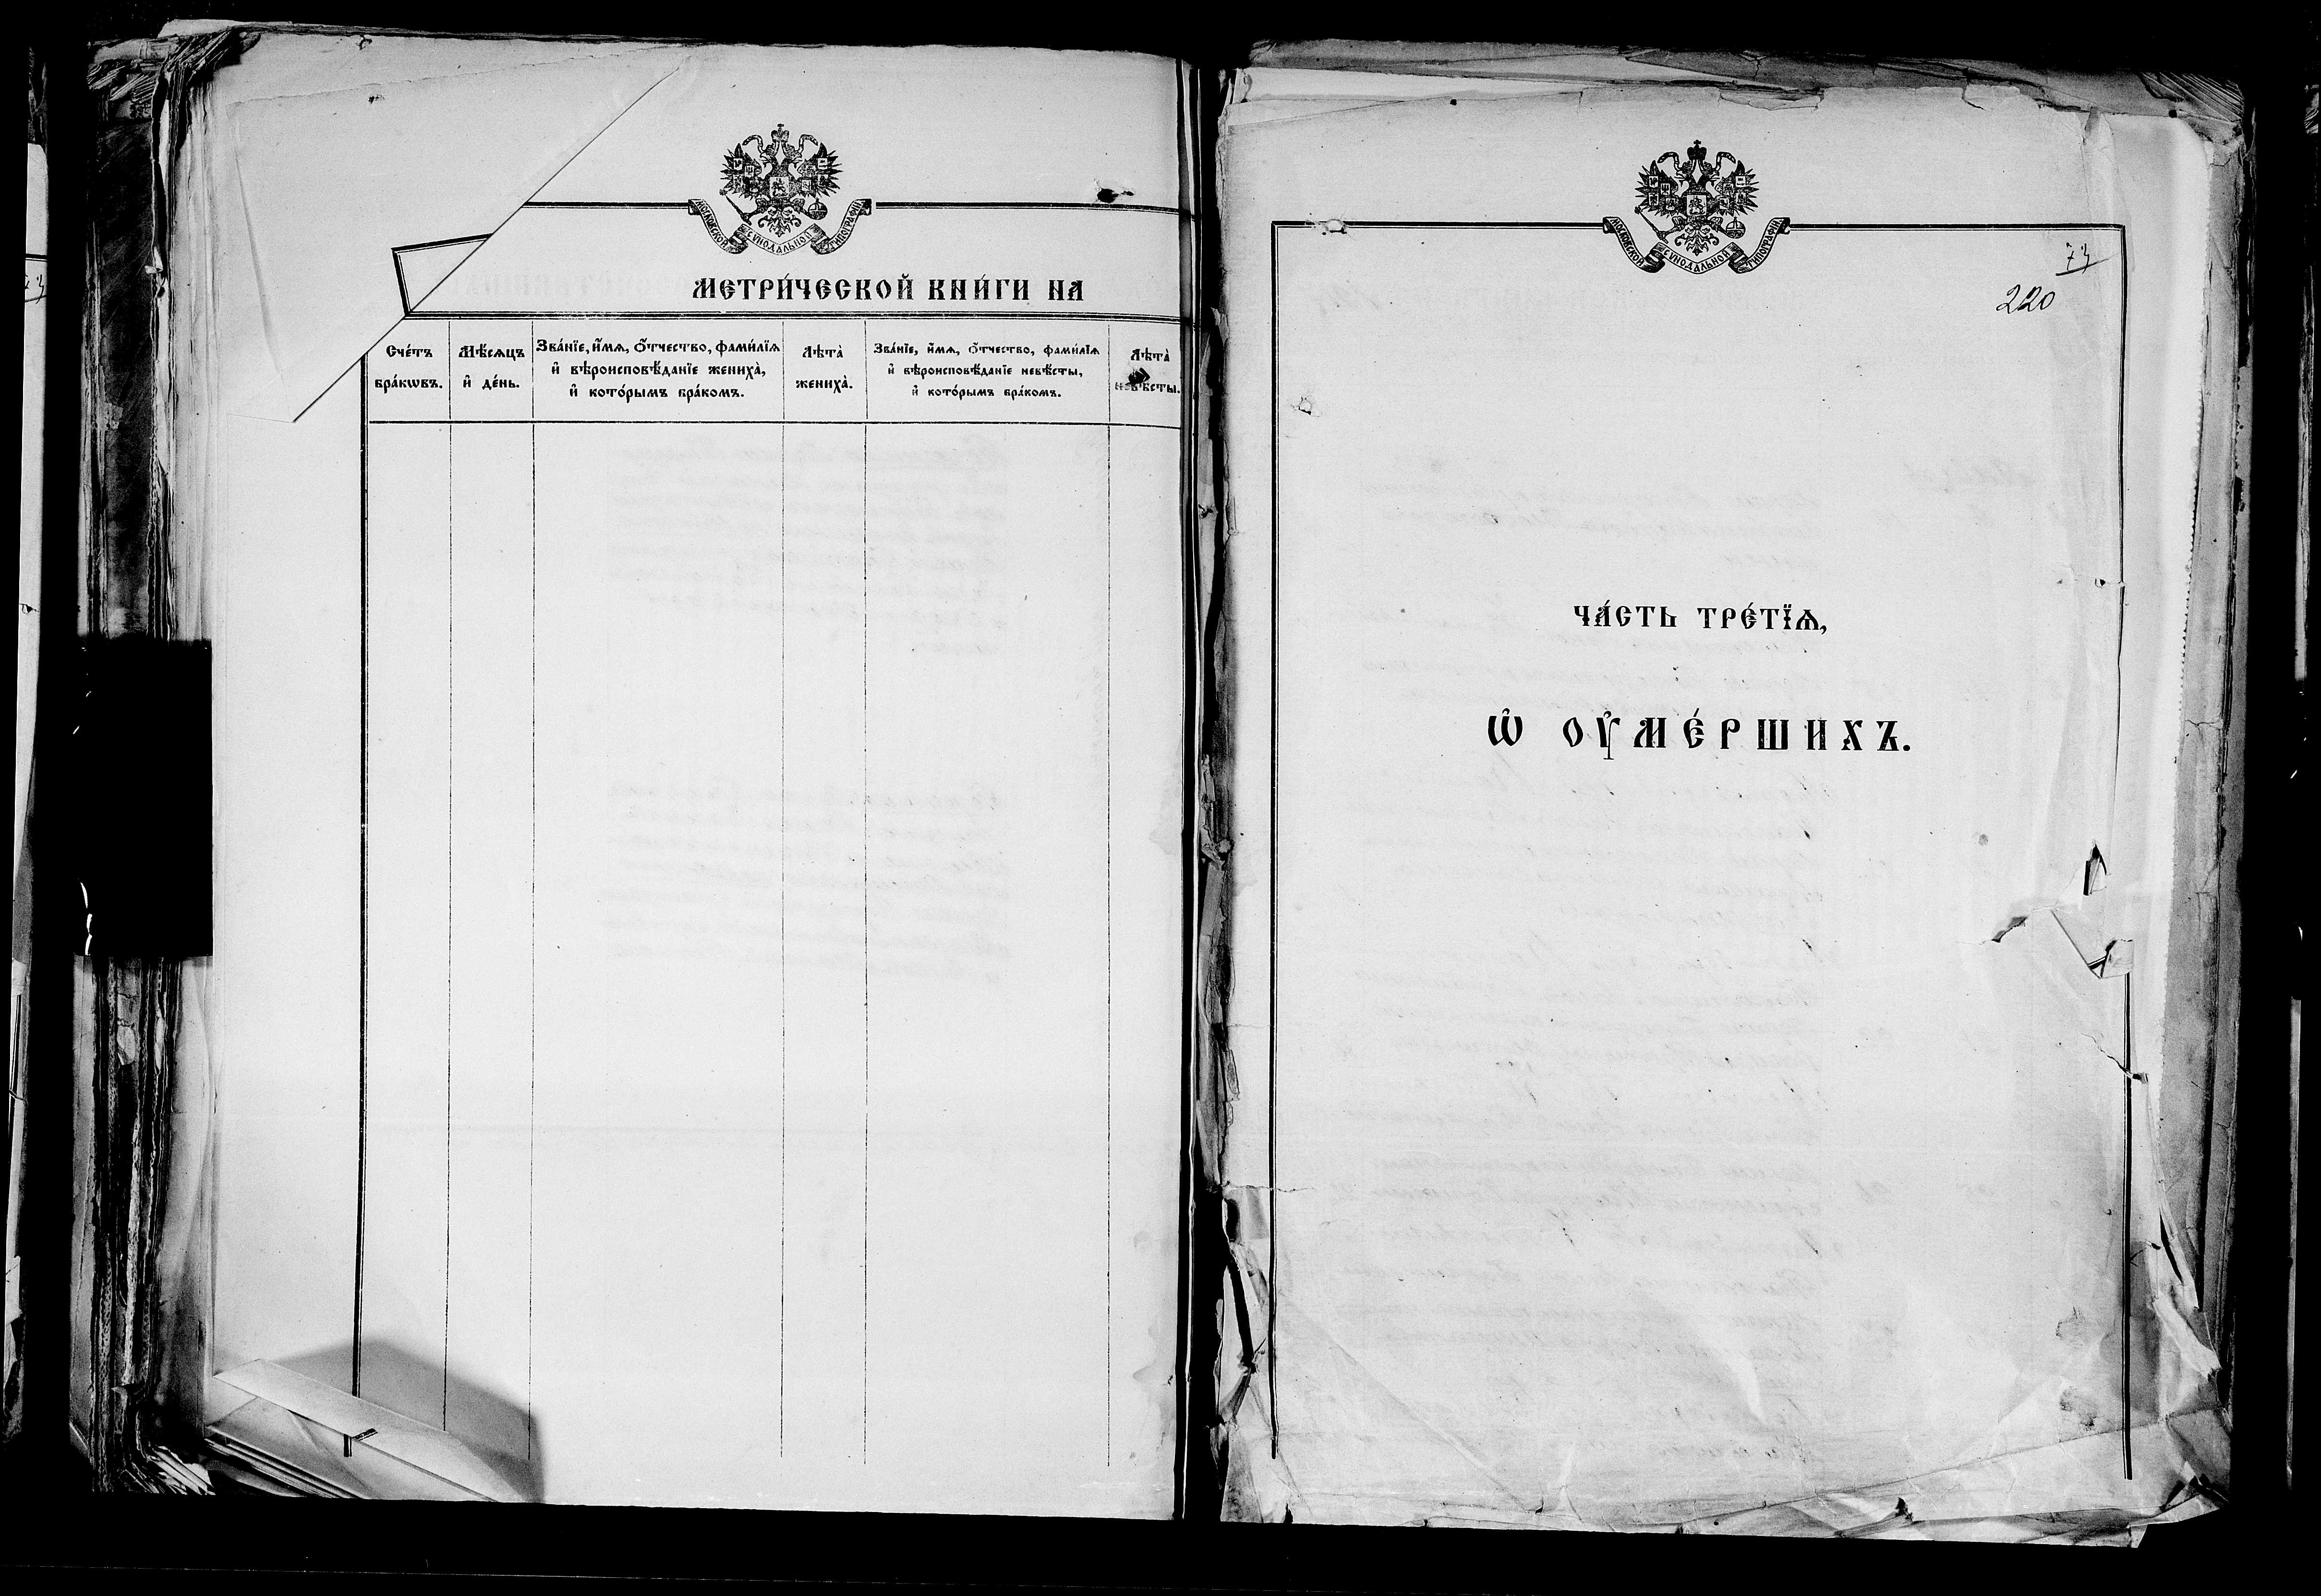 МОСКОВСКОЙ СѴНОДАЛЬНОЙ ТИПОГРАФІИ
МЕТРИ́ЧЕСКОЙ КНИ́ГИ НА
Сче́тъ бра́кѡвъ.
Мѣ́сѧцъ и҆ де́нь.
Зва́нїе, и҆́мѧ, ѻ҆́тчество, фами́лїѧ
и҆ вѣроисповѣ́данїе жениха̀,
и҆ кото́рымъ бра́комъ.
Лѣта̀ жениха̀.
Зва́нїе, и҆́мѧ, ѻ҆́тчество, фами́лїѧ
и҆ вѣроисповѣ́данїе невѣ́сты,
и҆ кото́рымъ бра́комъ.
Лѣта̀ невѣ́сты.
МОСКОВСКОЙ СѴНОДАЛЬНОЙ ТИПОГРАФІИ
220
ЧА́СТЬ ТРЕ́ТЇѦ,
Ѡ҆ ОУ҆МЕ́РШИХЪ.